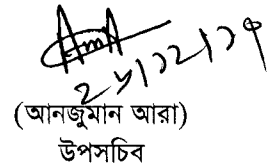 ২৮/১২/১৭
(আনজুমান আরা)
উপসচিব